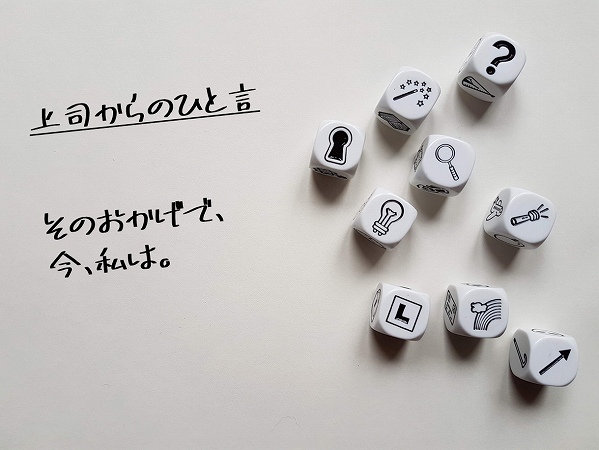 上司からのひと言
そのおかげで、
今、私は。
?
L